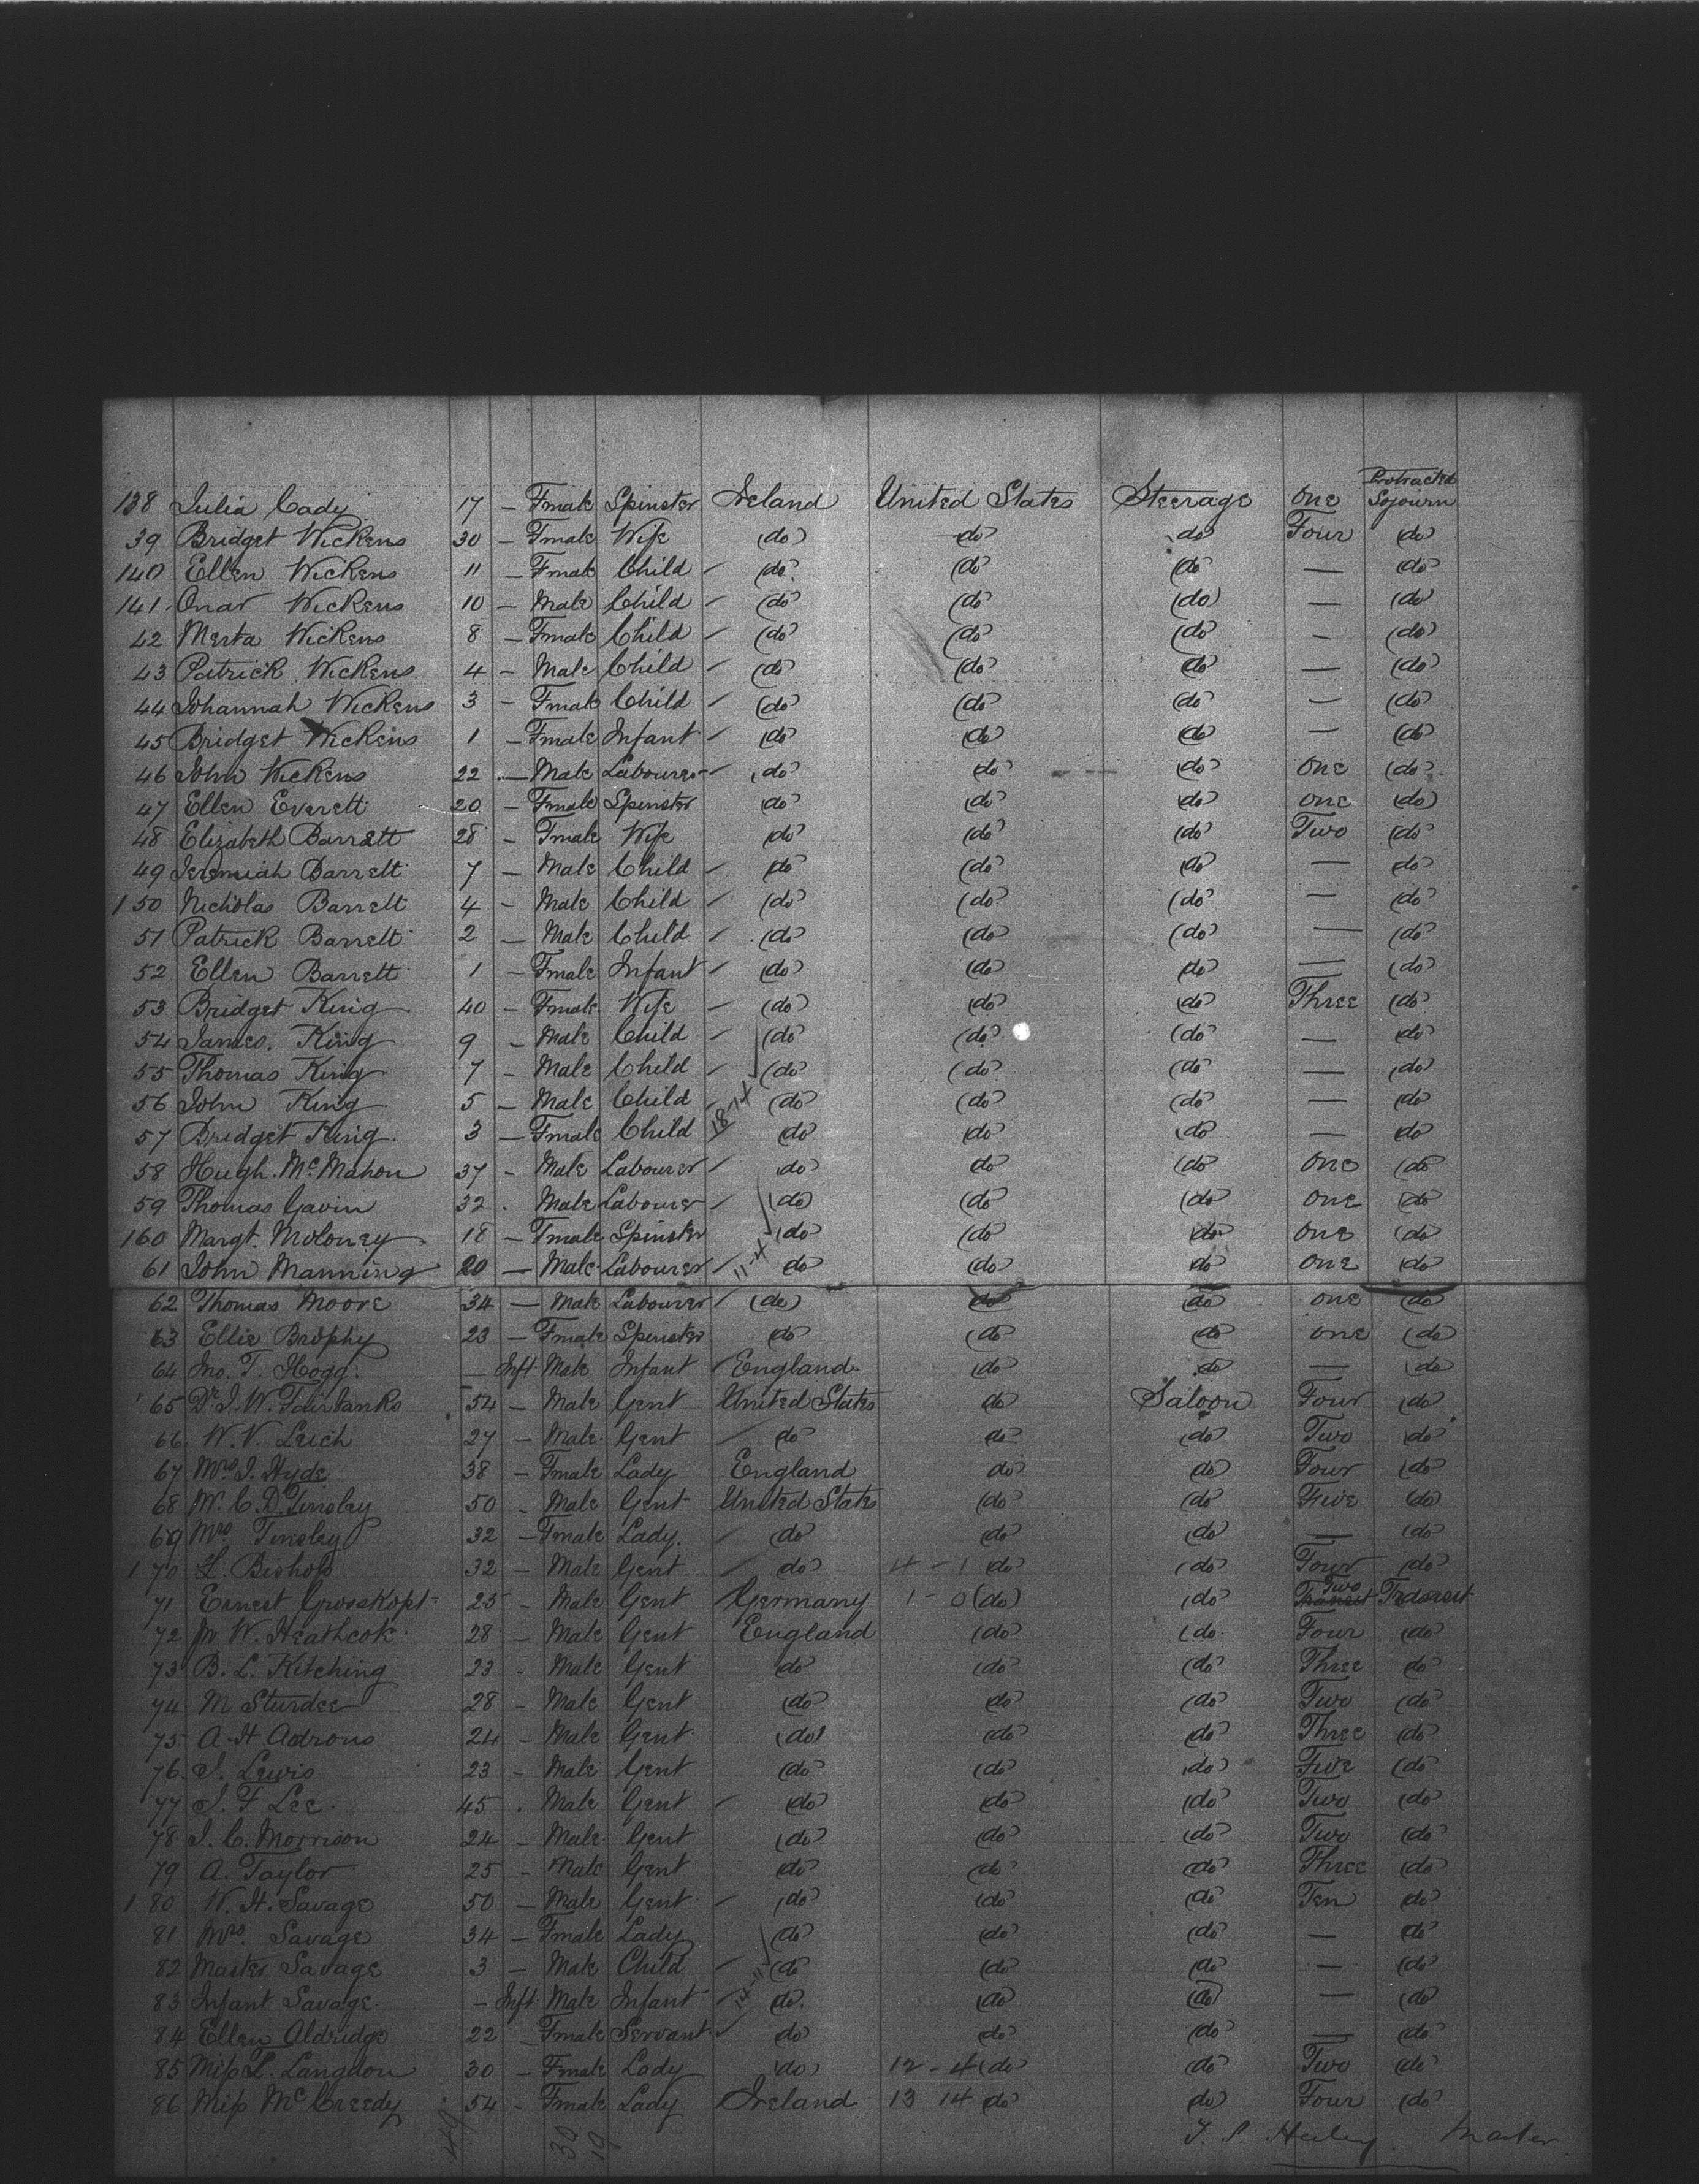 Protracted
138 Julia Cady 17 – Fmale Spinster Ireland United States Steerage One Sojourn
39 Bridget Wickens 30 – Fmale Wife (do) do do Four (do)
140 Ellen Wickens 11 – Fmale Child – (do) (do) (do) — (do)
141 Onar Wickens 10 – Male Child – (do) (do) (do) — (do)
42 Merta Wickens 8 – Fmale Child – (do) (do) (do) – (do)
43 Patrick Wickens 4 – Male Child – (do) (do) (do) — (do)
44 Johannah Wickens 3 – Fmale Child – (do) (do) (do) — (do)
45 Bridget Wickens 1 – Fmale Infant – (do) (do) (do) – (do)
46 John Wickens 22 – Male Labourer – (do) (do) (do) One (do)
47 Ellen Everett 20 – Fmale Spinster (do) (do) (do) One (do)
48 Elizabeth Barrett 28 – Fmale Wife (do) (do) (do) Two (do)
49 Jeremiah Barrett 7 – Male Child – (do) (do) (do) — (do)
150 Nicholas Barrett 4 – Male Child – (do) (do) (do) — (do)
51 Patrick Barrett 2 – Male Child – (do) (do) (do) — (do)
52 Ellen Barrett 1 – Fmale Infant – (do) (do) (do) — (do)
53 Bridget King 40 – Fmale Wife – (do) (do) (do) Three (do)
54 James King 9 – Male Child – (do) (do) (do) — (do)
55 Thomas King 7 – Male Child – (do) (do) (do) — (do)
56 John King 5 – Male Child – (do) (do) (do) — (do)
57 Bridget King 3 – Fmale Child (do) (do) (do) — (do)
58 Hugh McMahon 37 – Male Labourer – (do) (do) (do) One (do)
59 Thomas Gavin 32 . Male Labourer – (do) (do) (do) One (do)
160 Margt. Moloney 18 – Fmale Spinster (do) (do) (do) One (do)
61 John Manning 20 – Male Labourer – 11-4 (do) (do) (do) One (do)
62 Thomas Moore 34 – Male Labourer – (do) (do) (do) One (do)
63 Ellie Brophy 23 – Fmale Spinster (do) (do) (do) One (do)
64 Jno. T. Hogg – Inft Male Infant England (do) (do) — (do)
165 Dr J. W. Fairbanks 54 – Male Gent United States (do) Saloon Four (do)
66 W. V. Leich 27 – Male Gent – (do) (do) (do) Two (do)
67 Mrs J. Hyde 38 – Fmale Lady England (do) (do) Four (do)
68 W. C. D. Tinsley 50 – Male Gent United States (do) (do) Five (do)
69 Mrs Tinsley 32 – Fmale Lady – (do) (do) (do) — (do)
170 L. Bishop 32 – Male Gent – (do) 4 – 1 (do) (do) Four (do)
71 Ernest Grosskopf 25 – Male Gent Germany 1 – 0 (do) (do) Two Transit
72 W. Heathcok 28 – Male Gent England (do) (do) Four (do)
73 B. L. Kitching 23 – Male Gent (do) (do) (do) Three (do)
74 M Sturdee 28 – Male Gent (do) (do) (do) Two (do)
75 A. H Adrons 24 – Male Gent (do) (do) (do) Three (do)
76 J. Lewis 23 – Male Gent (do) (do) (do) Five (do)
77 J. F Lee 45 . Male Gent – (do) (do) (do) Two (do)
78 J. C. Morrison 24 – Male Gent (do) (do) (do) Two (do)
79 A. Taylor 25 – Male Gent (do) (do) (do) Three (do)
180 W. H. Savage 50 – Male Gent – (do) (do) (do) Ten (do)
81 Mrs. Savage 34 – Fmale Lady (do) (do) (do) — (do)
82 Master Savage 3 – Male Child – (do) (do) (do) — (do)
83 Infant Savage – Inft Male Infant – (do) (do) (do) — (do)
84 Ellen Aldridge 22 – Fmale Servant – (do) (do) (do) — (do)
85 Miss L. Langdon 30 – Fmale Lady (do) 12 – 4 (do) (do) Two (do)
86 Miss McCreedy 54 – Fmale Lady Ireland 13 14 (do) (do) Four (do)
49 39 19 Master